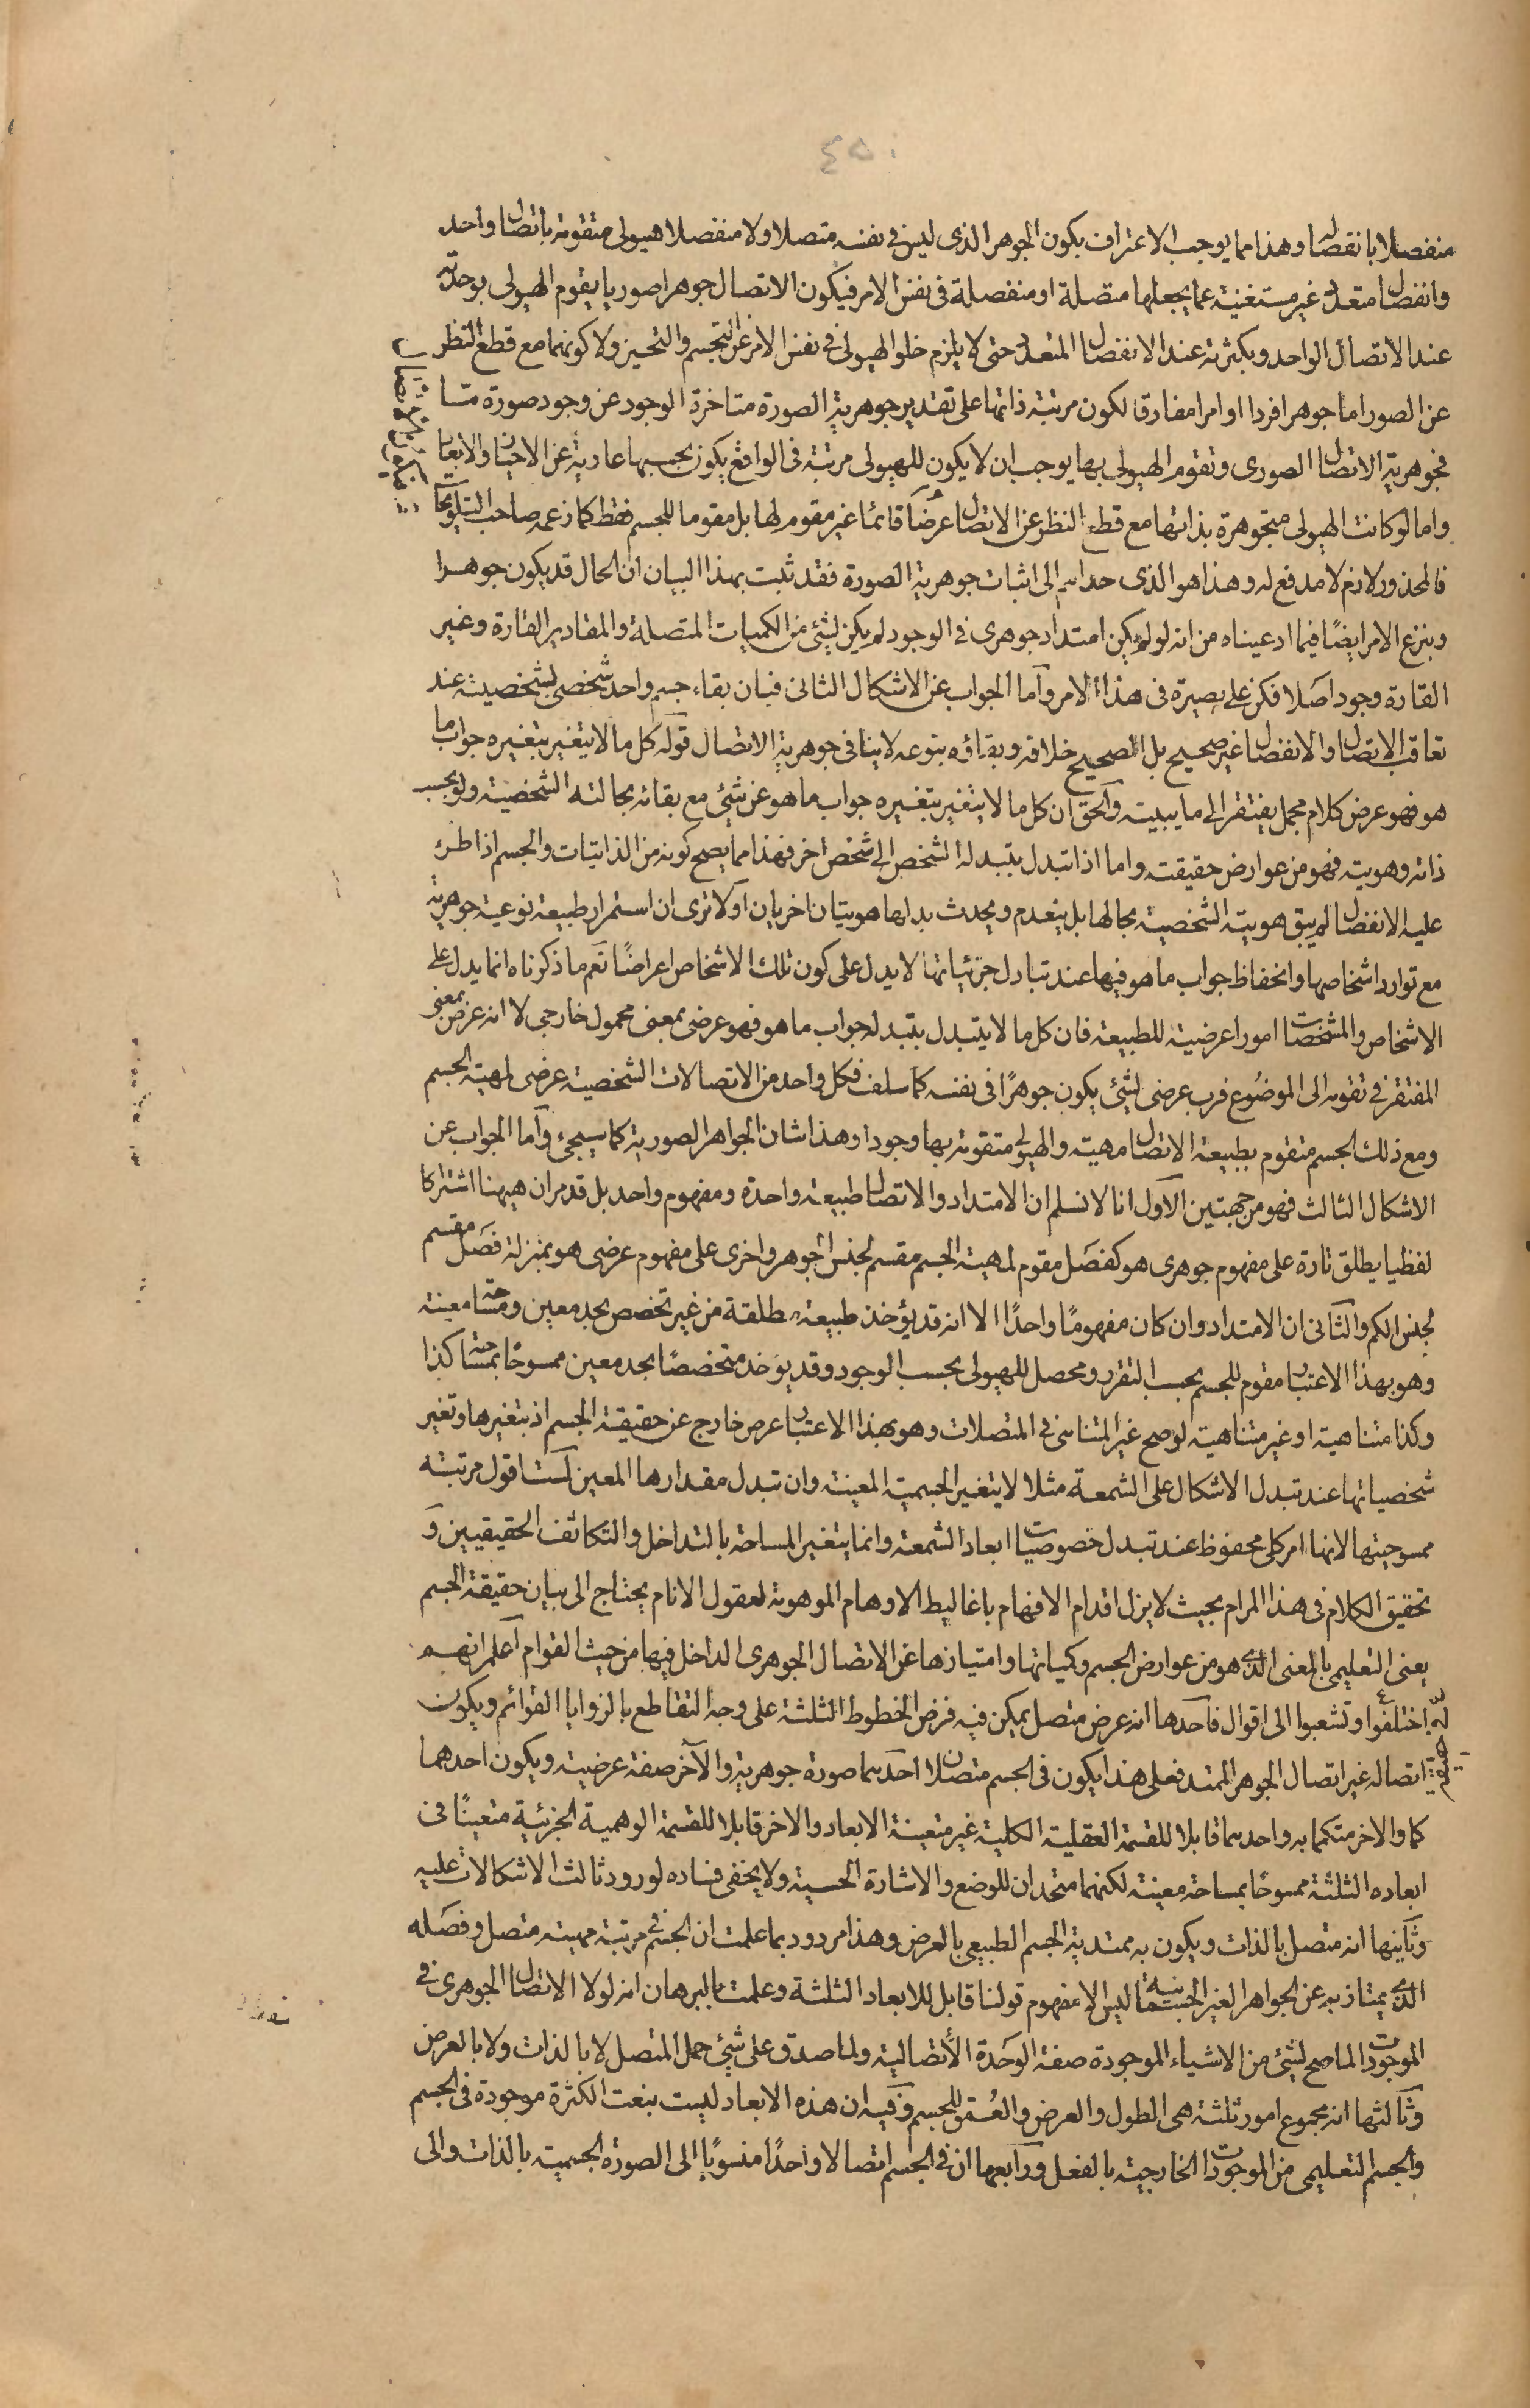 ٤٥٠
منفصلا بانفصاله وهذا مما يوجب الاعتراف بكون الجوهر الذى ليس فى نفسه متصلا ولا منفصلا هيولى متقومة باتصال واحد
وانفصال متعدد غير مستغنية عما يجعلها متصلة او منفصلة فى نفس الامر فيكون الاتصال جوهرا صوريا يقوم الهيولى بوحدته
عند الاتصال الواحد وبكثرته عند الانفصال المتعدد حتى لا يلزم خلو الهيولى فى نفس الامر عن التجسم والتحيز ولا كونهما مع قطع النظر
عن الصور اما جوهرا فردا او امرا مفارقا لكون مرتبة ذاتها على تقدير جوهرية الصورة متاخرة الوجود عن وجود صورة متا
فجوهرية الاتصال الصورى وتقوم الهيولى بها يوجب ان لا يكون للهيولى مرتبة فى الواقع يكون بحسبها عارية عن الاحياز والابعاد
واما لو كانت الهيولى متجوهرة بذاتها مع قطع النظر عن الاتصال عرضا قائما غير مقوم لها بل مقوما للجسم فقط كما زعمه صاحب التلويحات
فالمحذور لازم لا مدفع له وهذا هو الذى حداهم الى اثبات جوهرية الصورة فقد ثبت بهذا البيان ان الحال قد يكون جوهرا
وبنزع الامر ايضًا فيما ادعيناه من انه لو لم يكن امتداد جوهرى فى الوجود لم يكن لشئ من الكميات المتصلة والمقادير القارة وغير
القارة وجود اصلا فكن على بصيرة فى هذا الامر وآما الجواب عن الاشكال الثانى فبان بقاء جسم واحد شخصى بشخصيته عند
تعاقب الاتصال والانفصال غير صحيح بل الصحيح خلافه وبقاؤه بنوعه لا ينافى جوهرية الاتصال قوله كل ما لا يتغير بتغيره جواب ما
هو فهو عرض كلام مجمل يفتقر الى ما يبينه والحق ان كل ما لا يتغير بتغيره جواب ما هو عن شئ مع بقائه بحالته الشخصية ولو بحسب
ذاته وهويته فهو من عوارض حقيقته واما اذا تبدل بتبدله الشخص الى شخص اخر فهذا مما يصح كونه من الذاتيات والجسم اذا طرء
عليه الانفصال لم يبق هويته الشخصية بحالها بل ينعدم ويحدث بدلها هويتان اخريان اولا ترى ان استمرار طبيعة نوعية جوهرية
مع توارد اشخاصها وانحفاظ جواب ما هو فيها عند تبادل جزئياتها لا يدل على كون تلك الاشخاص اعراضًا نعم ما ذكرناه انما يدل على
الاشخاص والمشخصات امورا عرضية للطبيعة فان كل ما لا يتبدل بتبدله جواب ما هو فهو عرضى بمعنى محمول خارجى لا انه عرض بمعنى
المفتقر فى تقومه الى الموضوع فرب عرضى لشئ يكون جوهرًا فى نفسه كما سلف فكل واحد من الاتصالات الشخصية عرضى لمهية الجسم
ومع ذلك الجسم متقوم بطبيعة الاتصال مهية والهيولى متقومة بها وجودا وهذا شان الجواهر الصورية كما سيجئ وآما الجواب عن
الاشكال الثالث فهو من جهتين الاول انا لا نسلم ان الامتداد والاتصال طبيعة واحدة ومفهوم واحد بل قد مر ان هيهنا اشتراكا
لفظيا يطلق تارة على مفهوم جوهرى هو كفصل مقوم لمهية الجسم مقسم لجنس الجوهر واخرى على مفهوم عرضى هو بمنزلة فصل مقسم
لجنس الكم والثانى ان الامتداد وان كان مفهومًا واحدًا الا انه قد يؤخذ طبيعة مطلقة من غير تخصص بحد معين ومساحة معينة
وهو بهذا الاعتبار مقوم للجسم بحسب التقرر ومحصل للهيولى بحسب الوجود وقد يؤخذ متخصصًا بحد معين ممسوحًا بمساحة كذا
وكذا متناهية او غير متناهية لو صح غير المتناهى فى المتصلات وهو بهذا الاعتبار عرض خارج عن حقيقة الجسم اذ بتغيرها وتغير
شخصياتها عند تبدل الاشكال على الشمعة مثلا لا يتغير الجسمية المعينة وان تبدل مقدارها المعين لست اقول مرتبته
ممسوحيتها لانها امر كلى محفوظ عند تبدل خصوصيات ابعاد الشمعة وانما يتغير المساحة بالتداخل والتكاثف الحقيقيين وَ
تحقيق الكلام فى هذا المرام بحيث لا يزل اقدام الافهام باغاليط الاوهام الموهومة لعقول الانام يحتاج الى بيان حقيقة الجسم
يعنى التعليمى بالمعنى الذى هو من عوارض الجسم وكمياتها وامتيازها عن الاتصال الجوهرى الداخل فيها من حيث القوام اعلم انهم
اختلفوا وتشعبوا الى اقوال فاحدها انه عرض متصل يمكن فيه فرض الخطوط الثلثة على وجه التقاطع بالزوايا القوائم ويكون
اتصاله غير اتصال الجوهر الممتد فعلى هذا يكون فى الجسم متصلان احدهما صورة جوهرية والآخر صفة عرضية ويكون احدهما
كما والاخر متكمما به واحدهما قابلا للقسمة العقلية الكلية غير متعينة الابعاد والاخر قابلا للقسمة الوهمية الجزئية متعينًا فى
ابعاده الثلثة ممسوحًا بمساحة معينة لكنهما متحدان للوضع والاشارة الحسية ولا يخفى فساده لورود ثالث الاشكالات عليه
وثانيها انه متصل بالذات ويكون به ممتدية الجسم الطبيعى بالعرض وهذا مردود بما علمت ان الجسم فى مرتبة مهيته متصل وفصله
الذى يمتاز به عن الجواهر الغير الجسمانية ليس الا مفهوم قولنا قابل للابعاد الثلثة وعلمت بالبرهان انه لولا الاتصال الجوهرى فى
الموجودات لما صح لشئ من الاشياء الموجودة صفة الوحدة الاتصالية ولما صدق على شئ حمل المتصل لا بالذات ولا بالعرض
وثالثها انه مجموع امور ثلثة هى الطول والعرض والعمق للجسم وفيه ان هذه الابعاد ليست بنعت الكثرة موجودة فى الجسم
والجسم التعليمى من الموجودات الخارجية بالفعل ورابعها ان فى الجسم اتصالا واحدًا منسوبًا الى الصورة الجسمية بالذات والى